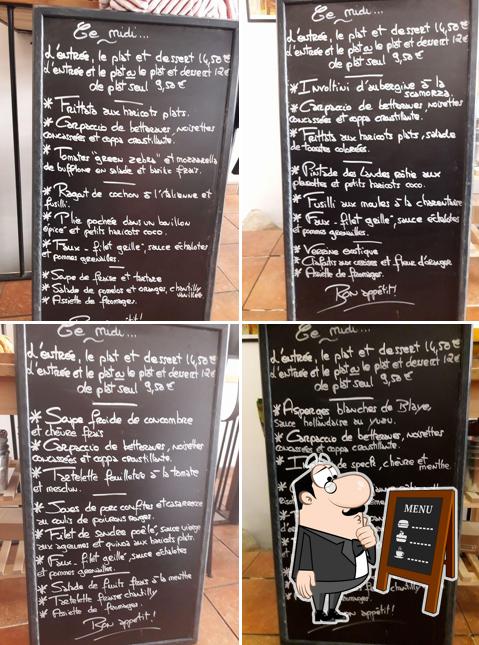 Ce midi...
d'entrée, le plat et dessert 14,50€
d'entrée et le plat ou le plat et dessert 12€
de plat seul 9,50€
* Frittata aux haricots plats.
* Carpaccio de betteraves, noisettes
concassées et coppa croustillante.
* Tomates "green zebra" et mozzarella
de bufflone en salade et basilic frais.
* Ragout de cochon à l'italienne et
fusilli.
* Plie pochée dans un bouillon
épicé et petits haricots coco.
* Faux-filet grillé, sauce échalotes
et pommes grenailles.
* Soupe de fraise et tartare
* Salade de pomelos et oranges, chantilly
vanillée
* Assiette de fromages.
Ce midi...
d'entrée, le plat et dessert 14,50€
d'entrée et le plat ou le plat et dessert 12€
de plat seul 9,50€
* Involtini d'aubergine à la
scamorza.
* Carpaccio de betteraves, noisettes
concassées et coppa croustillante.
* Frittata aux haricots plats, salade
de tomates colorées.
* Pintade des Landes rôtie aux
et petits haricots coco.
* Fusilli aux moules à la charentaise
* Faux-filet grillé, sauce échalotes
et pommes grenailles.
* Verrine exotique
* Clafoutis aux cerises et fleur d'oranger
* Assiette de fromages.
Bon appétit!
Ce midi...
d'entrée, le plat et dessert 14,50€
d'entrée et le plat ou le plat et dessert 12€
de plat seul 9,50€
* Soupe froide de concombre
et chèvre frais
* Carpaccio de betteraves, noisettes
concassées et coppa croustillante.
* Tartelette feuilletée à la tomate
et mesclun.
* Joues de porc confites et casarecce
au coulis de poivrons rouges.
* Filet de sandre poêlé, sauce vierge
aux agrumes et quinoa aux haricots plats.
* Faux-filet grillé, sauce échalotes
et pommes grenailles.
* Salade de fruits frais à la menthe
* Tartelette fraise chantilly
* Assiette de fromages.
Bon appétit!
Ce midi...
d'entrée, le plat et dessert 14,50€
d'entrée et le plat ou le plat et dessert 12€
de plat seul 9,50€
* Asperges blanches de Blaye,
sauce hollandaise au yuzu.
* Carpaccio de betteraves, noisettes
concassées et coppa croustillante.
de speck, chèvre et menthe.
chantilly
appétit!
MENU